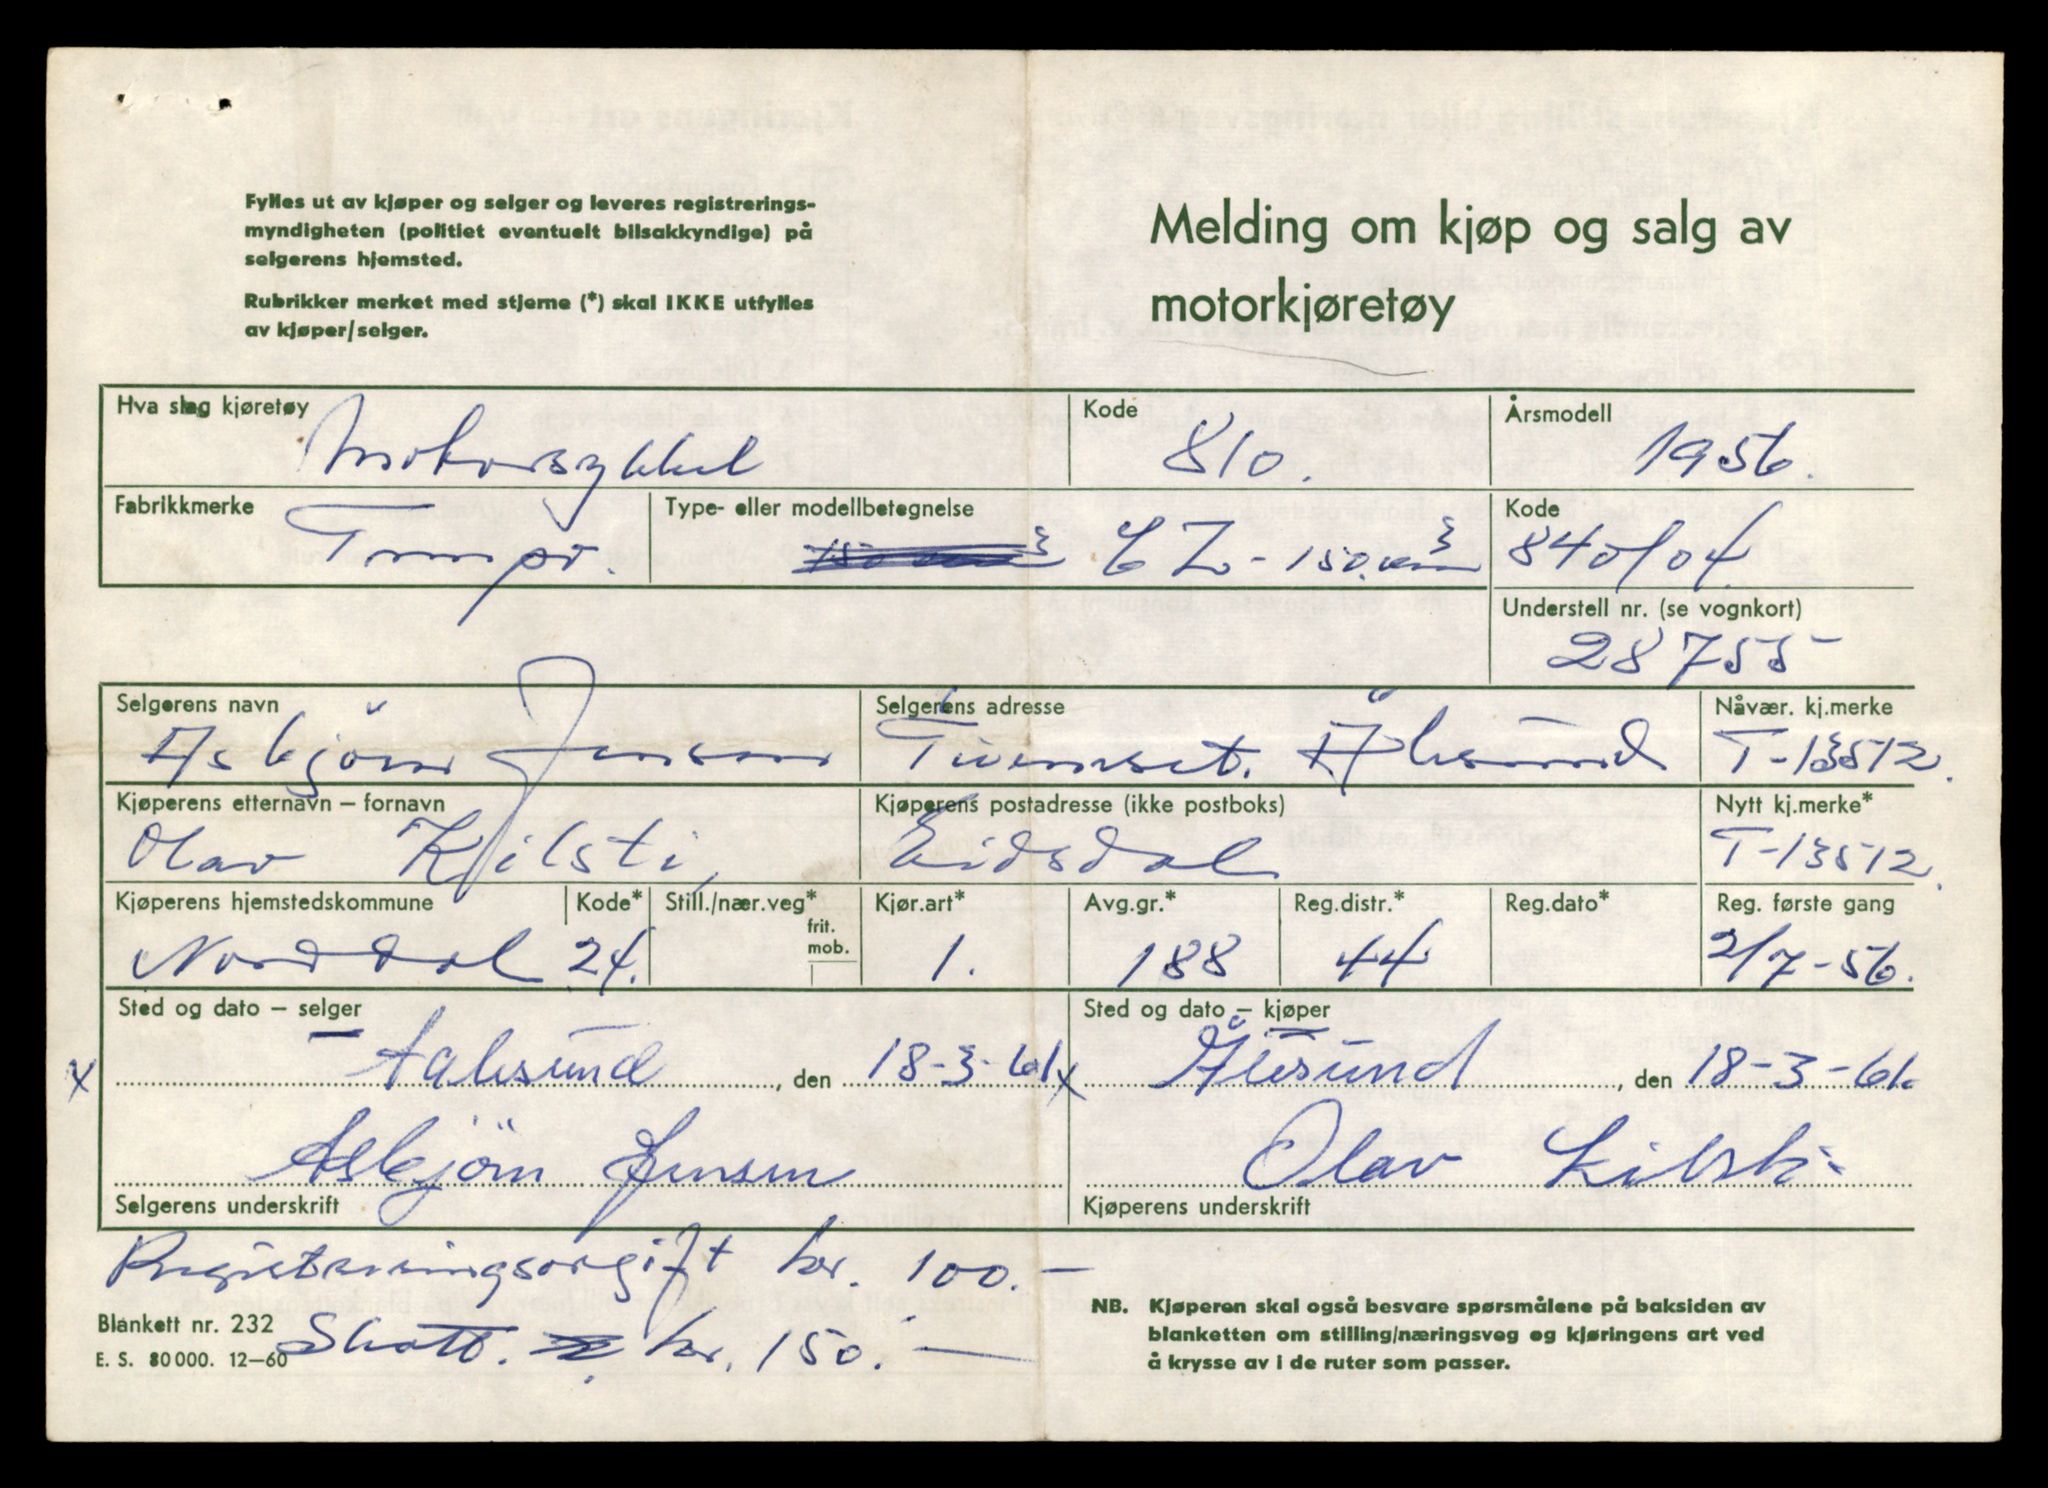 Fylles ut av kjøper og selger og leveres registrerings-
myndigheten (politiet eventuelt bilsakkyndige) på
selgerens hjemsted.
Rubrikker merket med stjerne (*) skal IKKE utfylles
av kjøper/selger.
Melding om kjøp og salg av
motorkjøretøy
Hva slag kjøretøy Motorsykkel
Kode 810.
Årsmodell 1956.
Fabrikkmerke Tempo.
Type- eller modellbetegnelse CZ - 150 cm³
Kode 840/04
Understell nr. (se vognkort)
28755
Selgerens navn Asbjörn Jensen
Selgerens adresse Ålesund
Nåvær. kj.merke T-13512.
Kjøperens etternavn – fornavn Olav Kjilsti,
Kjøperens postadresse (ikke postboks) Eidsdal
Nytt kj.merke* T-13512.
Kjøperens hjemstedskommune Norddal
Kode* 24.
Still./nær.veg* frit. mob.
Kjør.art* 1.
Avg.gr.* 188
Reg.distr.* 44
Reg.dato*
Reg. første gang 2/7-56.
Sted og dato – selger
x Aalesund, den 18-3-61
Asbjörn Jensen
Selgerens underskrift
Sted og dato – kjøper
x Ålesund, den 18-3-61.
Olav Kilsti
Kjøperens underskrift
Registreringsavgift kr. 100.-
Skatt. kr. 150.-
Blankett nr. 232
E. S. 80 000. 12–60
NB. Kjøperen skal også besvare spørsmålene på baksiden av
blanketten om stilling/næringsveg og kjøringens art ved
å krysse av i de ruter som passer.